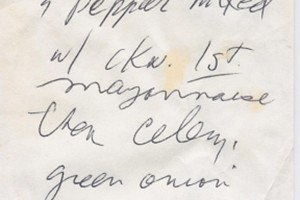 & pepper mixed
w/ ckn. 1st.
mayonnaise
then celery,
green onion